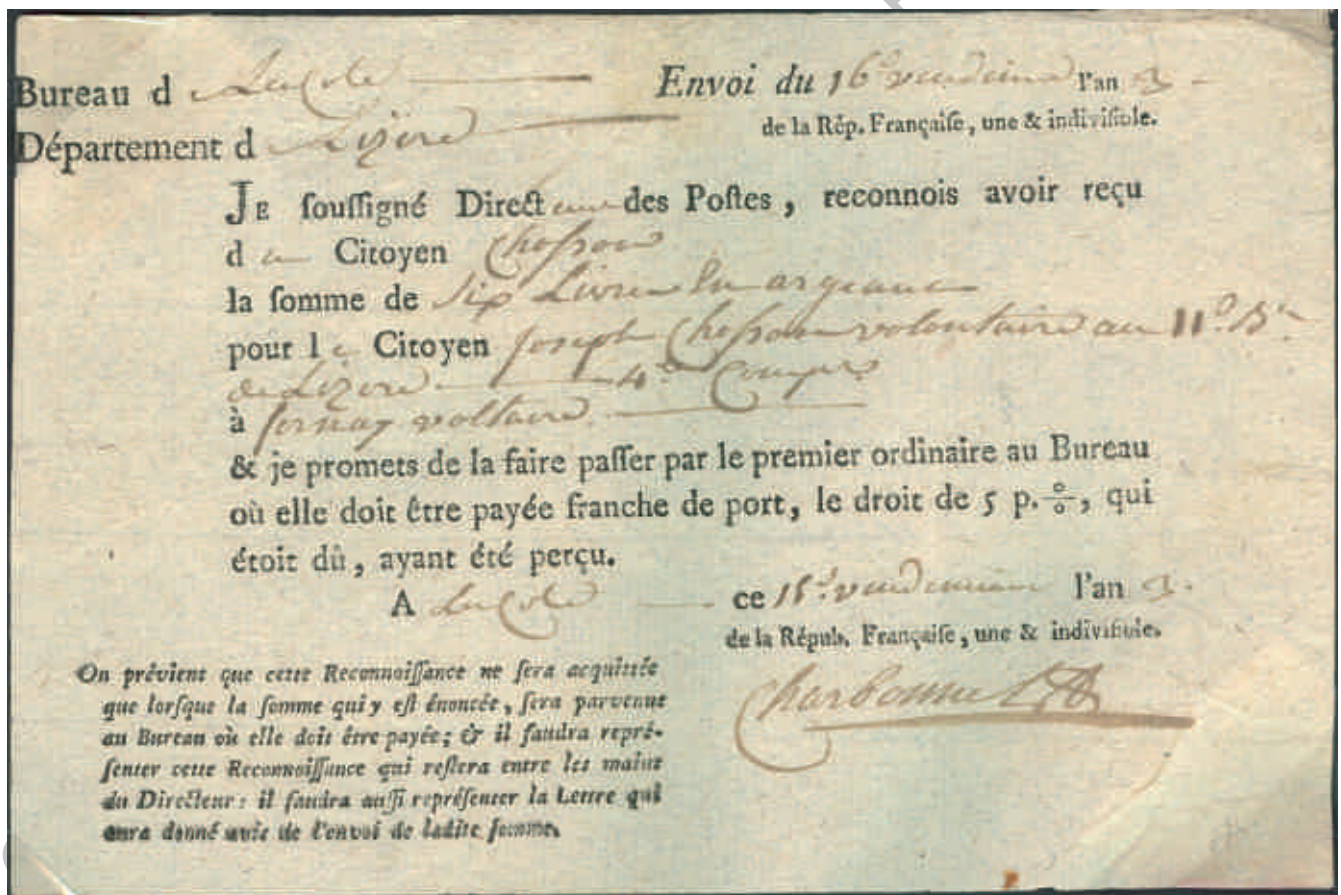 Bureau d LaCote
Envoi du 16e vendemia l'an 3
Département d Lizere
de la Rép. Françaiſe, une & indiviſible.
JE ſouſſigné Direct des Poſtes, reconnois avoir reçu
d u Citoyen Choſſon
la ſomme de Six Livres En argeant
pour l e Citoyen joseph Choſſon volontaire au 11e Bn
de Lizere 4e Compe
à fernay voltaire
& je promets de la faire paſſer par le premier ordinaire au Bureau
où elle doit être payée franche de port, le droit de 5 p. %, qui
étoit dû, ayant été perçu.
A LaCote ce vendemiaire l'an 3.
de la Répub. Françaiſe, une & indiviſible.
Charbonnel
On prévient que cette Reconnoiſſance ne ſera acquittée
que lorſque la ſomme qui y eſt énoncée, ſera parvenue
au Bureau où elle doit être payée; & il faudra repré-
ſenter cette Reconnoiſſance qui reſtera entre les mains
du Directeur: il faudra auſſi repréſenter la Lettre qui
aura donné avis de l'envoi de ladite ſomme.